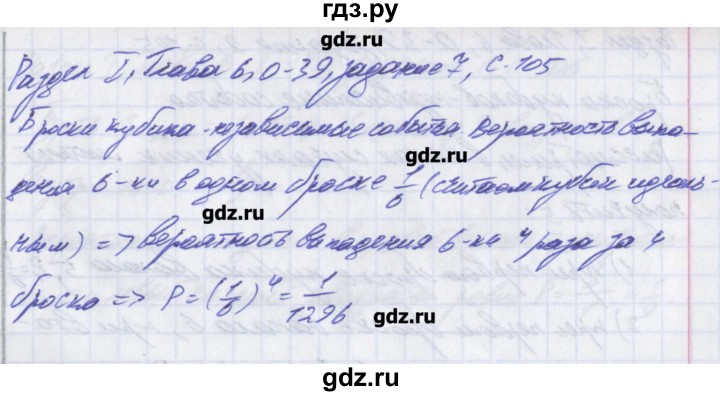 гдз.ру
gdz.ru
Раздел I, Глава 6, О-39, задание 7, с. 105
Броски кубика - независимые события. Вероятность выпа-
gdz.ru
дения 6-ки в одном броске 1/6 (считаем кубик идеаль-
gdz.ru
ным) => вероятность выпадения 6-ки 4 раза за 4
gdz.ru
броска => P = (1/6)^4 = 1/1296
gdz.ru
gdz.ru